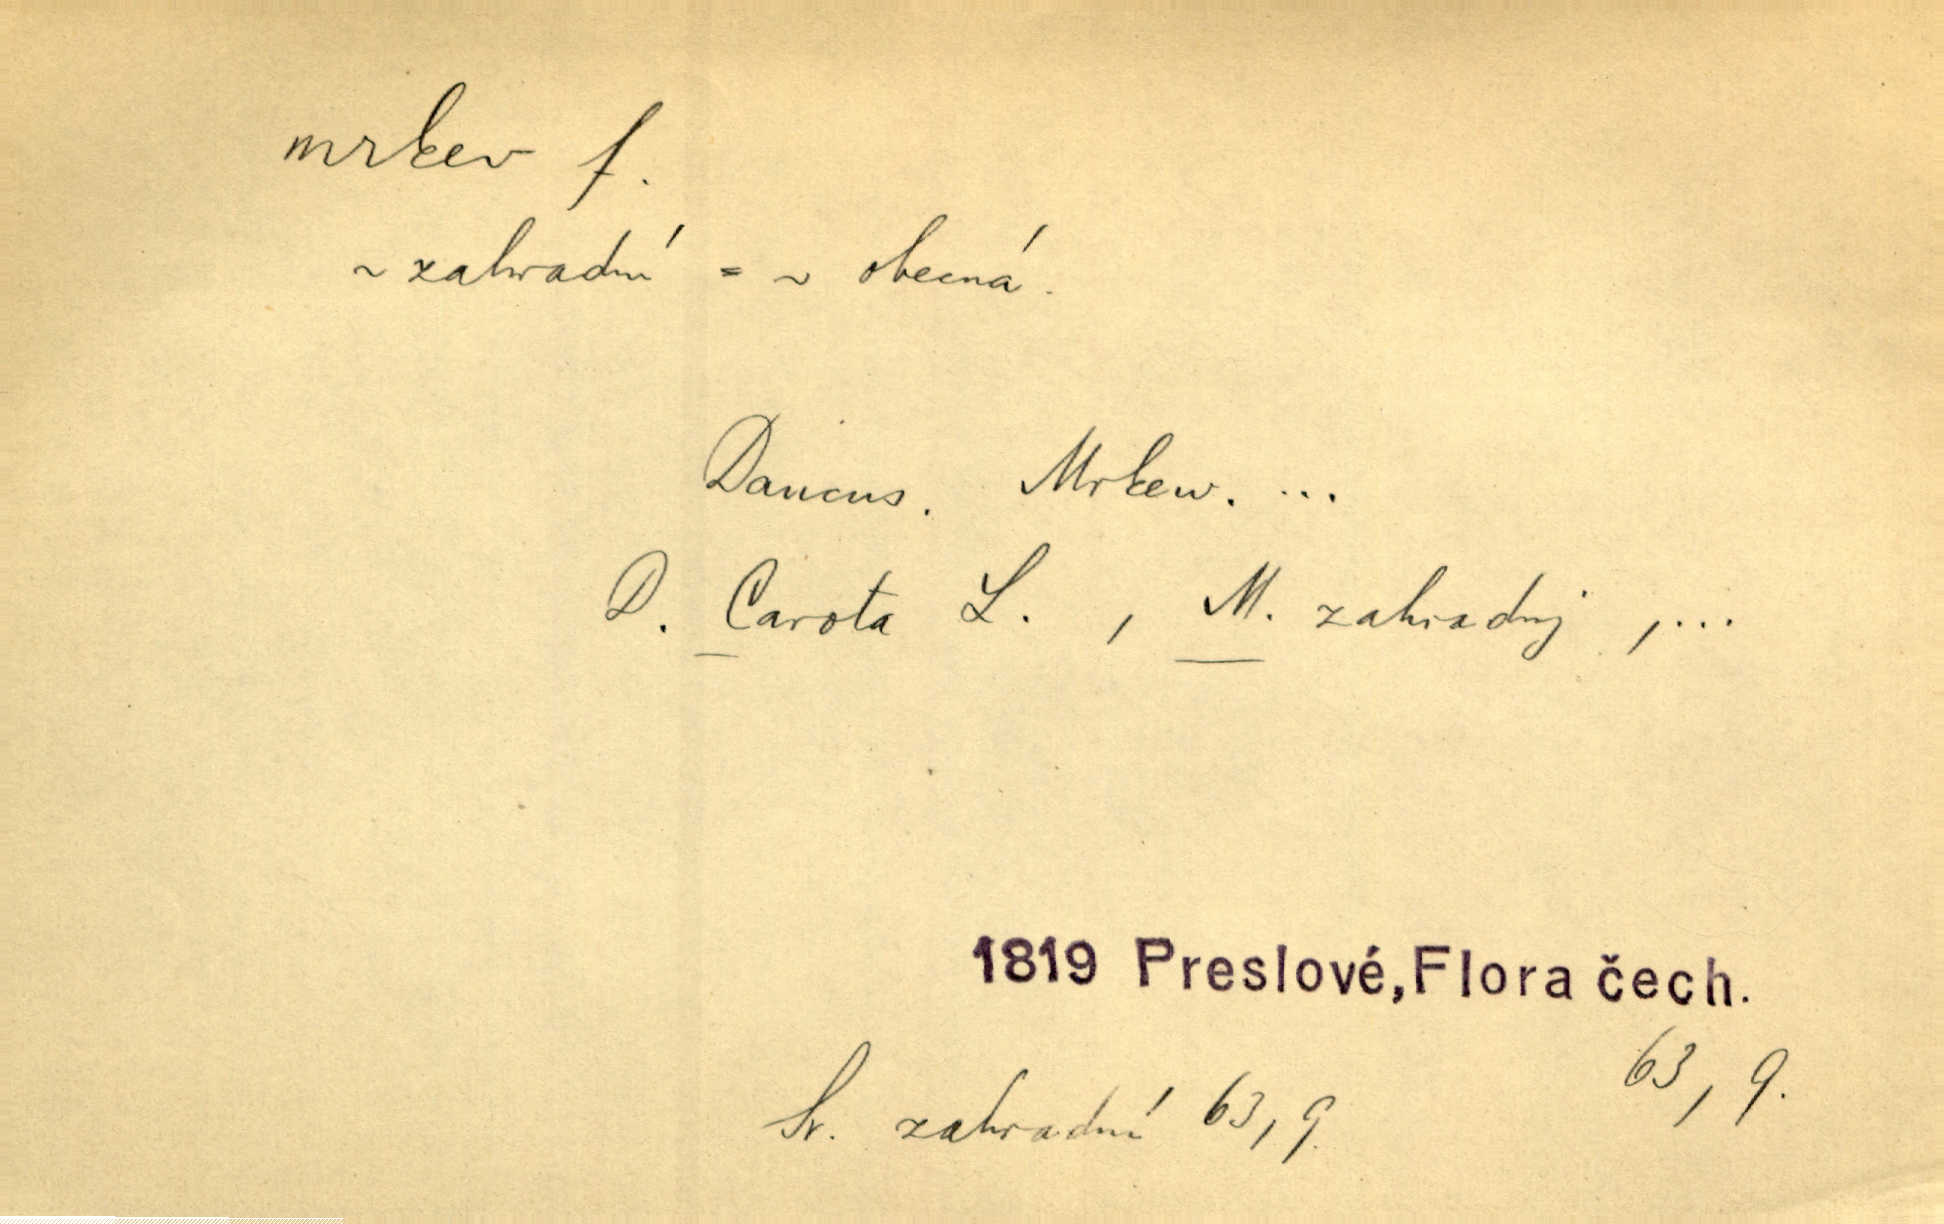 mrkev f.
~ zahradní = ~ obecná.
Daucus. Mrkew. ...
D. Carota L. , M. zahradnj , ...
1819 Preslové, Flora čech.
63, 9.
Sr. zahradní 63, 9.